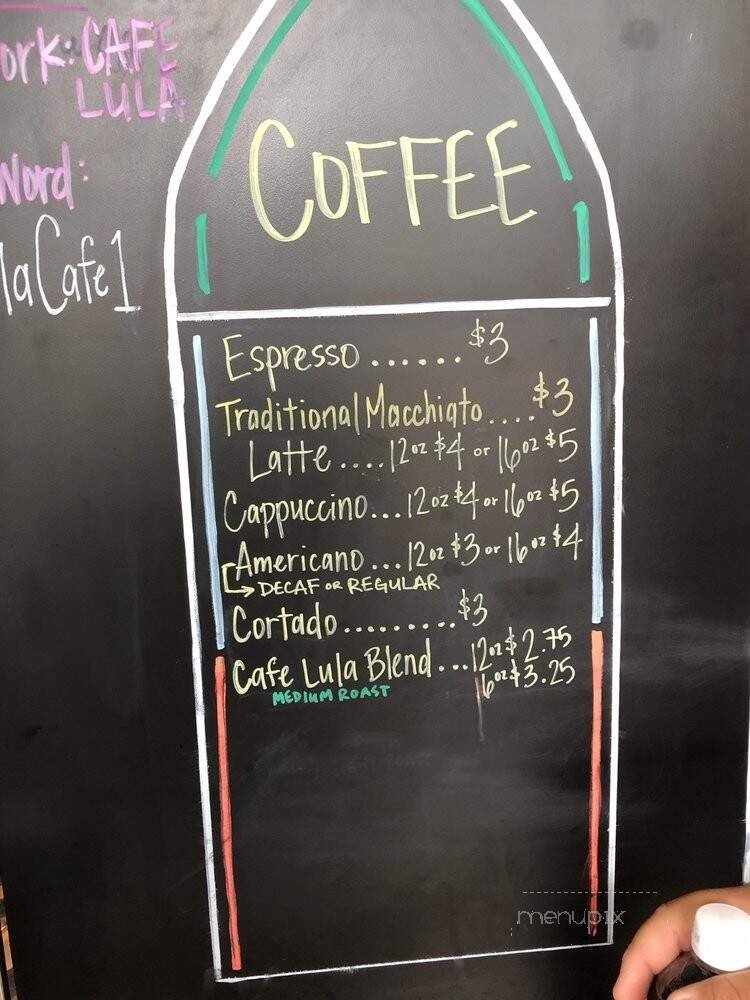 ork: CAFE
LULA
Word:
laCafe1
COFFEE
Espresso ...... $3
Traditional Macchiato .... $3
Latte .... 12oz $4 or 16oz $5
Cappuccino... 12oz $4 or 16oz $5
Americano ... 12oz $3 or 16oz $4
DECAF OR REGULAR
Cortado ......... $3
Cafe Lula Blend ... 12oz $2.75
16oz $3.25
MEDIUM ROAST
menupix